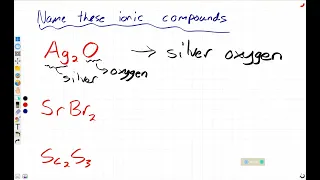 Name these ionic compounds
Ag₂O → silver oxygen
silver → oxygen
SrBr₂
Sc₂S₃